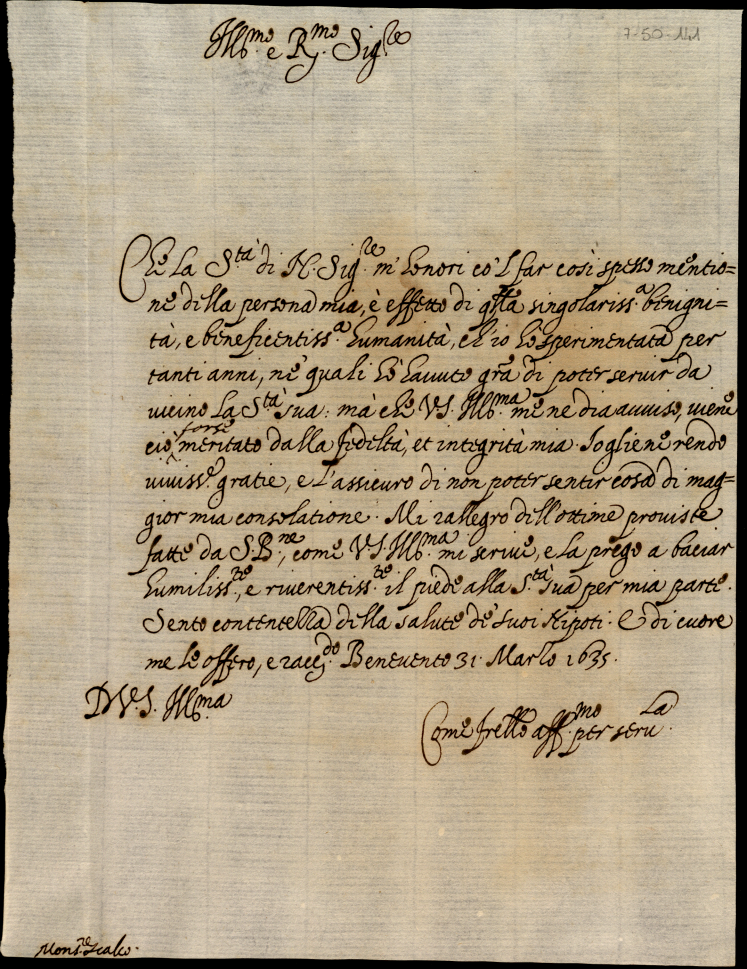 7-50-141
Ill.mo e R.mo Sig.re
Che la S.tà di N. Sig.re m'honori co'l far così spesso mentio=
ne della persona mia, è effetto di q̃lla singolariss.a benigni=
tà, e beneficentiss.a humanità, ch'io hò sperimentata per
tanti anni, ne' quali hò havuto grã di poter servir da
vicino la S.tà sua: mà che V.S. Ill.ma me ne dia avviso, viene
forse
ciò meritato dalla fideltà, et integrità mia. Io gliene rendo
viviss.e gratie, e l'assicuro di non poter sentir cosa di mag=
gior mia consolatione. Mi rallegro dell'ottime proviste
fatte da S. B.ne, come V.S. Ill.ma mi scrive, e la prego a baciar
humiliss.te, e riverentiss.te il piede alla S.tà sua per mia parte.
Sento contentezza della salute de' suoi Nipoti. E di cuore
me le offero, e racc.do Benevento 31. Marzo 1635.
D V.S. Ill.ma
Come frello aff.mo per serv.la
Mons.re Scalco.